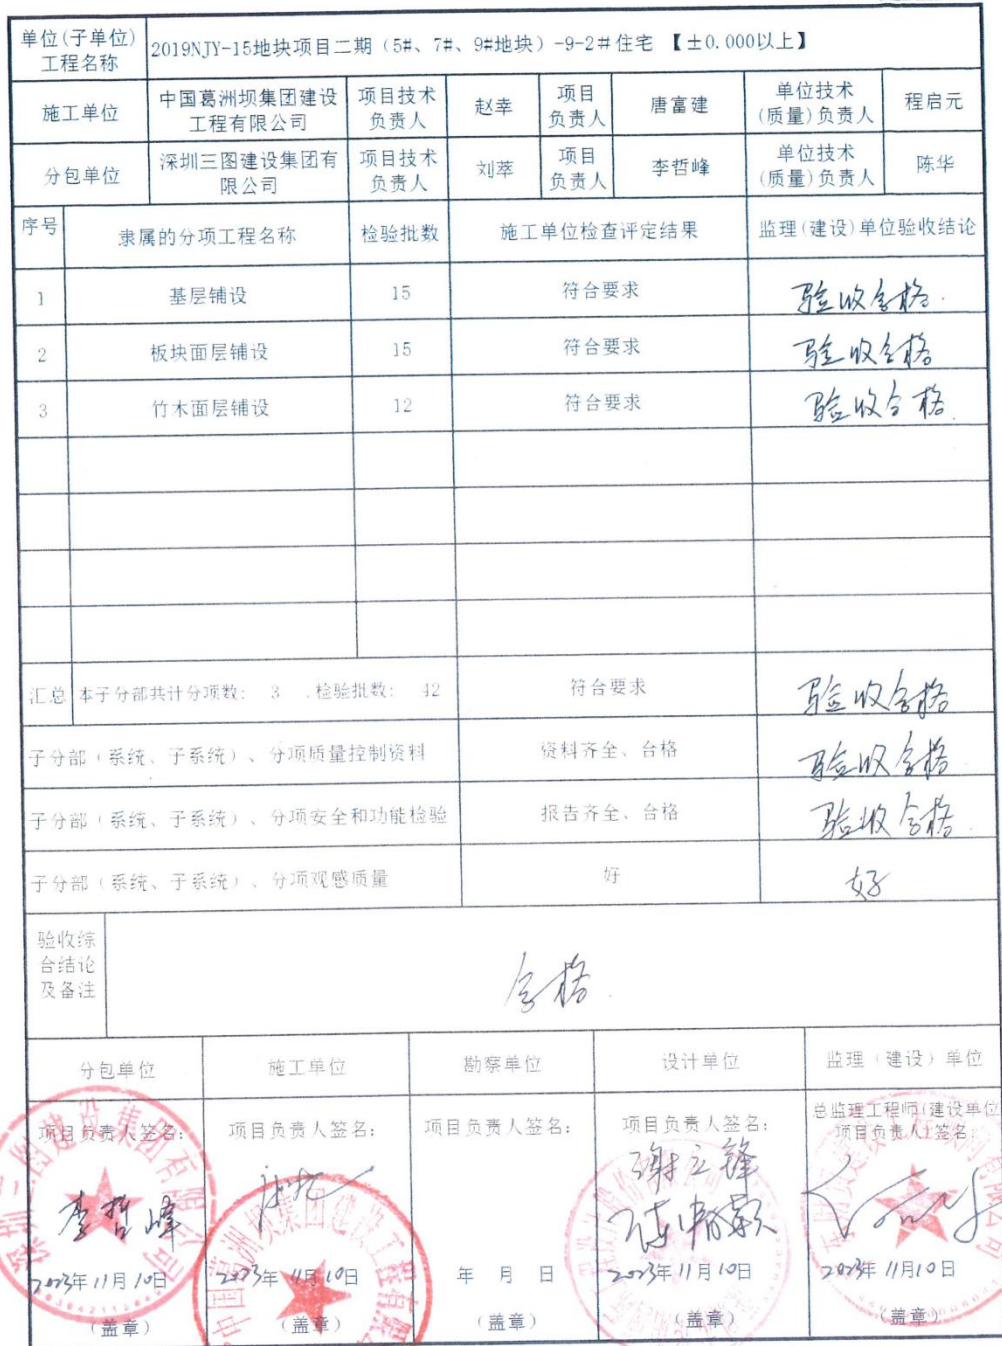 单位(子单位)
工程名称
2019NJY-15地块项目二期（5#、7#、9#地块）-9-2＃住宅 【±0.000以上】
施工单位
中国葛洲坝集团建设
工程有限公司
项目技术
负责人
赵幸
项目
负责人
唐富建
单位技术
(质量)负责人
程启元
分包单位
深圳三图建设集团有
限公司
项目技术
负责人
刘萃
项目
负责人
李哲峰
单位技术
(质量)负责人
陈华
序号
隶属的分项工程名称
检验批数
施工单位检查评定结果
监理(建设)单位验收结论
1
基层铺设
15
符合要求
验收合格.
2
板块面层铺设
15
符合要求
验收合格
3
竹木面层铺设
12
符合要求
验收合格.
汇总
本子分部共计分项数: 3 .检验批数: 42
符合要求
验收合格
子分部（系统、子系统）、分项质量控制资料
资料齐全、合格
验收合格
子分部（系统、子系统）、分项安全和功能检验
报告齐全、合格
验收合格.
子分部（系统、子系统）、分项观感质量
好
好
验收综
合结论
及备注
合格.
分包单位
施工单位
勘察单位
设计单位
监理（建设）单位
项目负责人签名:
项目负责人签名:
项目负责人签名:
项目负责人签名:
总监理工程师(建设单位
项目负责人)签名:
李哲峰
谢立锋
2023年11月10日
2023年11月10日
年 月 日
2023年11月10日
2023年11月10日
(盖章)
(盖章)
(盖章)
(盖章)
(盖章)